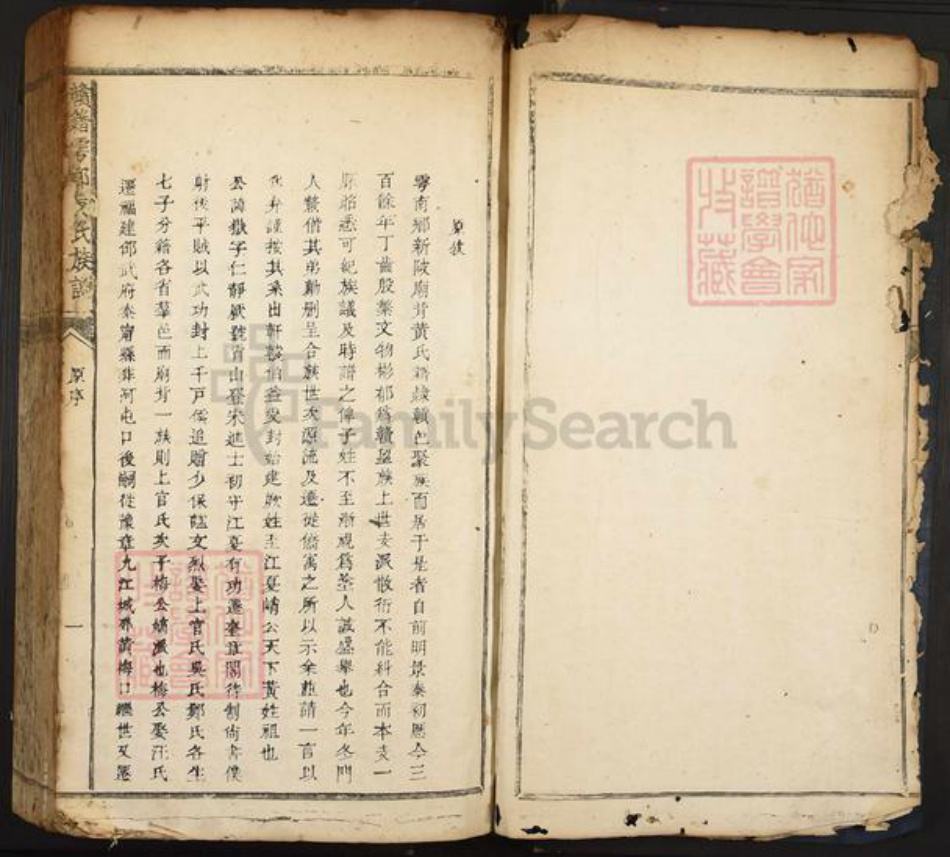 原敘
雩南鄉新陂廟背黃氏籍隸贛邑聚族而居于是者自前明景泰初歷今三
百餘年丁齒殷繁文物彬郁爲贛望族上世支派散衍不能糾合而本支一
脈昭悉可紀族議及時譜之俾子姓不至漸視爲塗人誠盛舉也今年冬門
人 偕其弟勷刪呈合族世次源流及遷徙僑寓之所以示余 請一言以
弁 謹按其系出軒轅伯益受封始建厥姓至江夏峭公天下黃姓祖也
公諱嶽字仁靜厥號青山登宋進士初守江夏有功遷奎章閣待制尚書僕
射後平賊以武功封上千戶侯追贈少保諡文烈娶上官氏吳氏鄭氏各生
七子分籍各省羣邑而廟背一族則上官氏次子梅公嫡派也梅公娶汪氏
遷福建邵武府泰甯縣 河屯口後嗣徙豫章九江城 黃梅口繼世又遷
贛籍雩 氏族譜
原序
一
猶他家
譜學會
收藏
猶他家
譜學會
收藏
FamilySearch